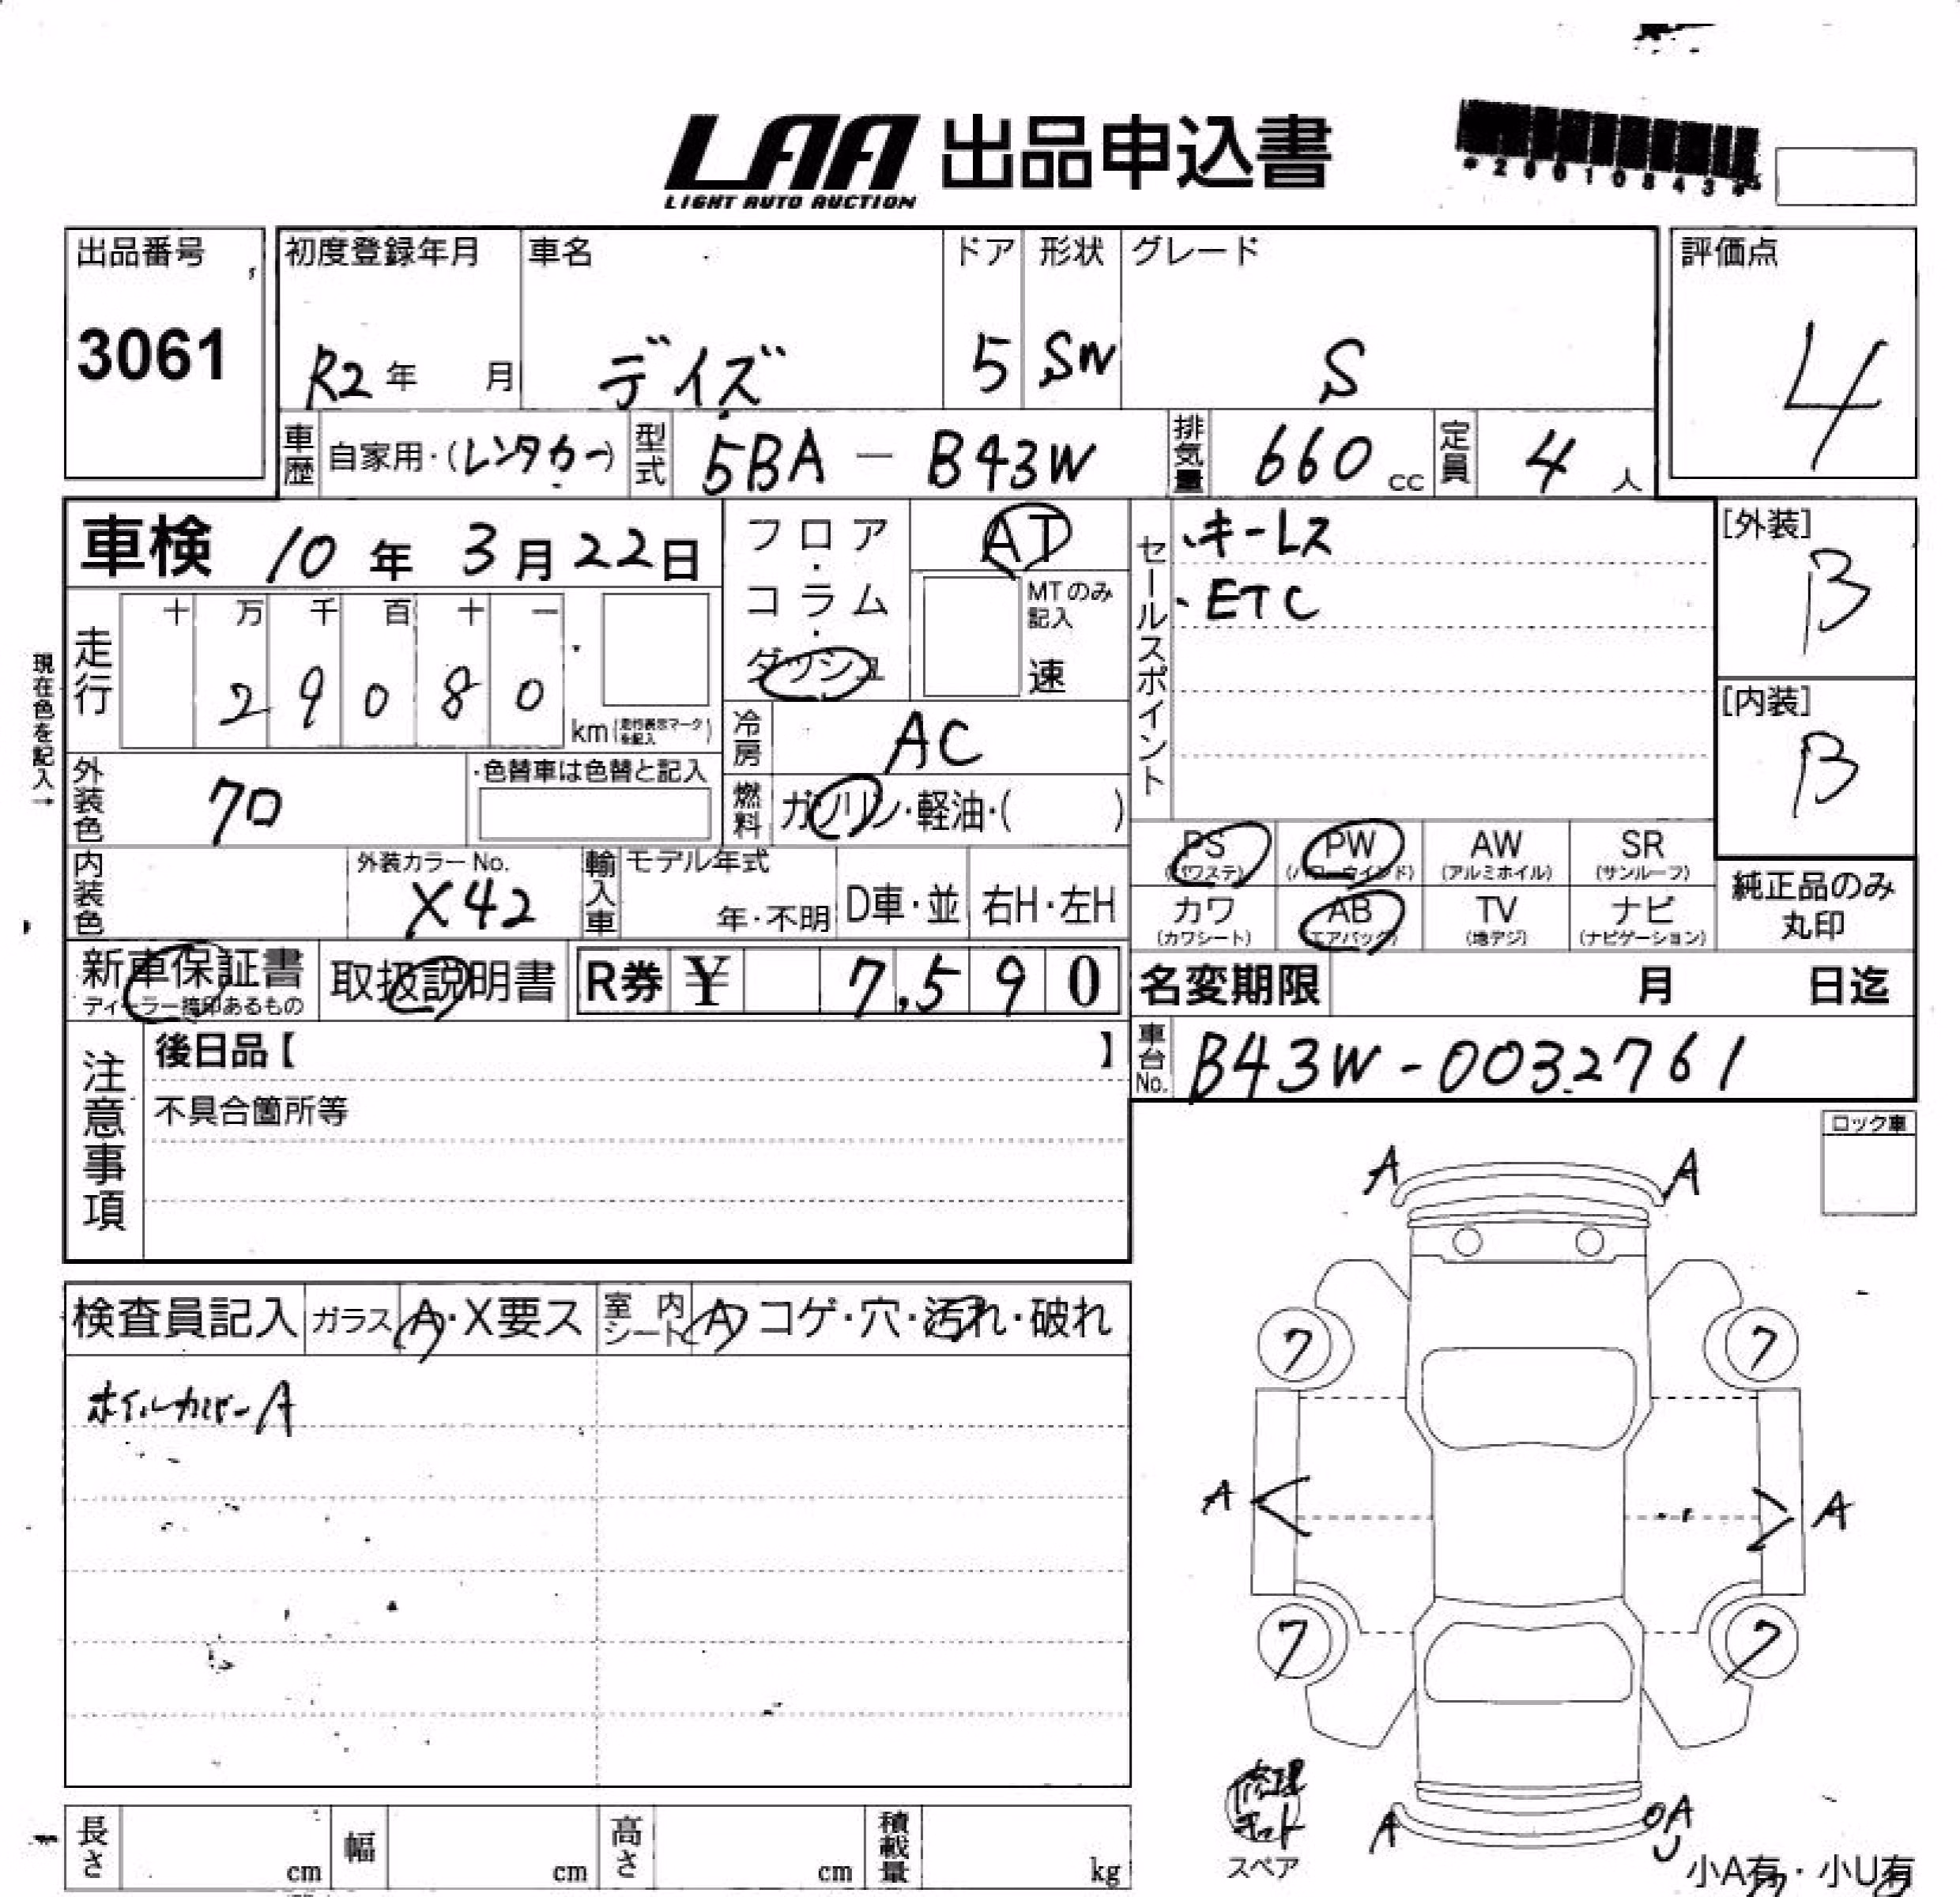 LAA 出品申込書
LIGHT AUTO AUCTION
出品番号
3061
初度登録年月
R2年 月
車名
デイズ
ドア
5
形状
SW
グレード
S
評価点
4
車歴 自家用・(レンタカー)
型式 5BA - B43W
排気量 660 cc
定員 4 人
車検 10年 3月 22日
フロア・コラム・ダッシュ
AT
MTのみ記入
速
セールスポイント
・キーレス
・ETC
[外装]
B
[内装]
B
現在色を記入→
走行
十 万 千 百 十 一
2 9 0 8 0
km(走行表示マークを記入)
冷房 AC
燃料 ガソリン・軽油・( )
外装色 クロ
・色替車は色替と記入
内装色
外装カラーNo.
X42
輸入車
モデル年式
年・不明
D車・並
右H・左H
PS (パワステ)
PW (パワーウインド)
AW (アルミホイル)
SR (サンルーフ)
カワ (カワシート)
AB (エアバッグ)
TV (地デジ)
ナビ (ナビゲーション)
純正品のみ
丸印
新車保証書
ディーラー捺印あるもの
取扱説明書
R券 ¥ 7,590
名変期限 月 日迄
車台No. B43W-0032761
注意事項
後日品【 】
不具合箇所等
ロック車
検査員記入
ガラス A・X要ス
室内シート A コゲ・穴・汚れ・破れ
ホイルカバーA
A A
7 7
A A
7 7
修理
キット
スペア
A A
U
小A有・小U有
長さ cm
幅 cm
高さ cm
積載量 kg